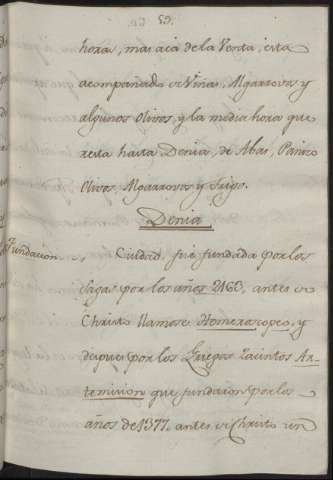 59.
hora, mas acá de la Venta, esta
acompañado de Viñas, Algarrovos y
algunos Olivos, y la media hora que
resta hasta Denia, de Abas, Panizo
Olivos, Algarrovos y Trigo.
Denia
Fundacion, Ciudad, fue fundada por los
Sagas por los años 2163, antes de
Christo llamose Homeroscopeo, y
despues por los Griegos Zacintos Ar-
temision que fundaron por los
años de 1377. antes de Christo un